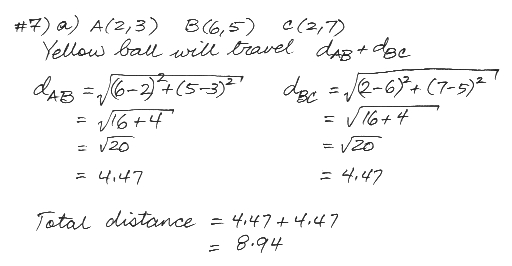 #7) a) A(2,3) B(6,5) C(2,7)
Yellow ball will travel d_AB + d_BC
d_AB = √(6-2)²+(5-3)² d_BC = √(2-6)²+(7-5)²
= √16+4 = √16+4
= √20 = √20
= 4.47 = 4.47
Total distance = 4.47 + 4.47
= 8.94